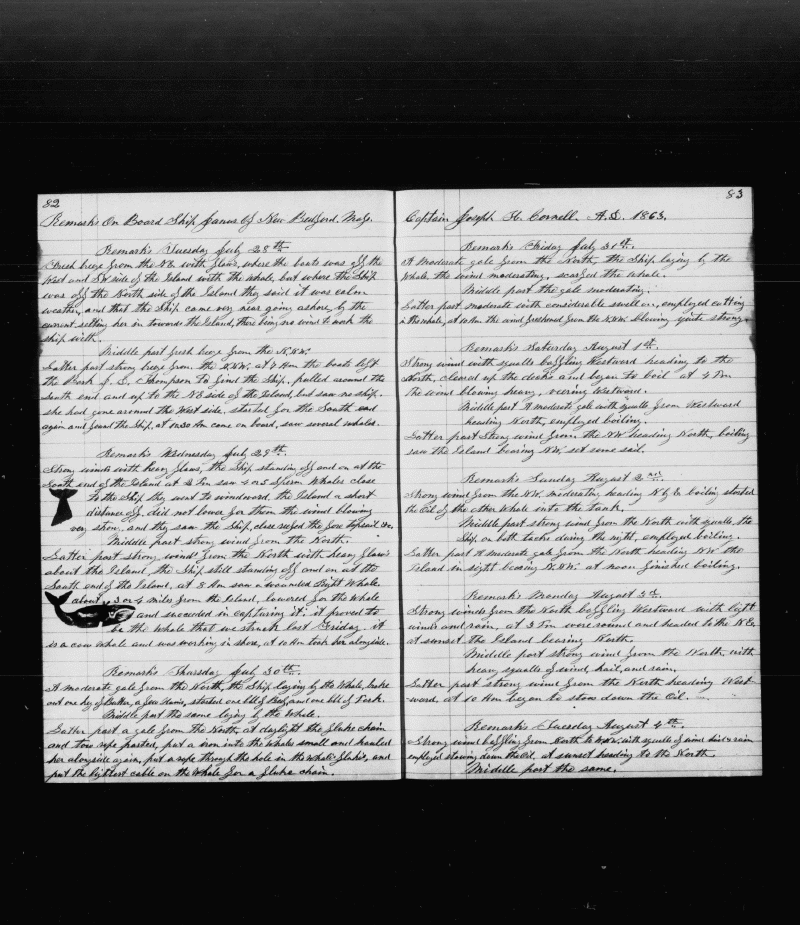 82
Remarks On Board Ship Janus of New Bedford. Mass.
Remarks Tuesday July 28th
Fresh breeze from the N.E. with flaws, where the boats was off the
West and S.W side of the Island with the whale, but where the Ship
was off the North side of the Island they said it was calm
weather, and that the Ship came very near going ashore, by the
current setting her in towards the Island, there being no wind to work the
ship with.
Middle part fresh breeze from the N.N.W.
Latter part strong breeze from the N.N.W. at 7 Am the boats left
the Bark J. E. Thompson to find the Ship, pulled around the
South end and up to the NE side of the Island, but saw no ship.
she had gone around the West side, started for the South end
again and found the Ship, at 10.30 Am came on board, saw several whales.
Remarks Wednesday July 29th
Strong winds with heavy flaws, the Ship standing off and on at the
South end of the Island, at 2 Pm saw 4 or 5 Sperm Whales close
to the Ship they went to windward, the Island a short
distance off, did not lower for them the wind blowing
very strong, and they saw the Ship, close reefed the fore topsail
Middle part strong wind from the North.
Latter part strong wind from the North with heavy flaws
about the Island, the Ship still standing off and on at the
South end of the Island, at 8 Am saw a wounded Right Whale
about 3 or 4 miles from the Island, lowered for the Whale
and succeeded in capturing it; it proved to
be the Whale that we struck last Friday it
is a cow whale and was working in shore, at 10 Am took her alongside.
Remarks Thursday July 30th
A moderate gale from the North, the Ship laying by the Whale, broke
out one keg of Butter, a few Hams, started one bbl of Beef, and one bbl of Pork.
Middle part the same laying by the Whale.
Latter part a gale from the North, at daylight the fluke chain
and tow rope parted, put a iron into the whales small and hauled
her alongside again, put a rope through the hole in the Whales flukes, and
put the lightest cable on the Whale for a fluke chain.
83
Captain Joseph H. Cornell. A.D. 1863.
Remarks Friday July 31st
A moderate gale from the North, the Ship laying by the
Whale, the wind moderating, scarfed the whale.
Middle part the gale moderating.
Latter part moderate with considerable swell on, employed cutting
in the whale, at 10 Am the wind freshened from the N.N.W. blowing quite strong.
Remarks Saturday August 1st
Strong wind with squalls baffling Westward heading to the
North, cleared up the decks and began to boil at 4 Pm
the wind blowing heavy, veering Westward.
Middle part A moderate gale with squalls from Westward
heading North, employed boiling.
Latter part Strong wind from the NW heading North, boiling
saw the Island bearing N.W. set some sail.
Remarks Sunday August 2nd
Strong wind from the N.W. moderating heading N by E. boiling started
the Oil of the other Whale into the tank.
Middle part strong wind from the North with squalls, the
Ship on both tacks during the night, employed boiling.
Latter part A moderate gale from the North heading N.W the
Island in sight bearing W.N.W. at noon finished boiling.
Remarks Monday August 3d
Strong winds from the North baffling Westward with light
winds and rain, at 3 Pm wore round and headed to the N.E.
at sunset the Island bearing North.
Middle part strong wind from the North, with
heavy squalls of wind, hail, and rain.
Latter part strong wind from the North heading West-
ward, at 10 Am began to stow down the Oil.
Remarks Tuesday August 4th
Strong wind baffling from North to W.N.W. with squalls of wind hail & rain
employed stowing down the Oil, at sunset heading to the North.
Middle part the same.